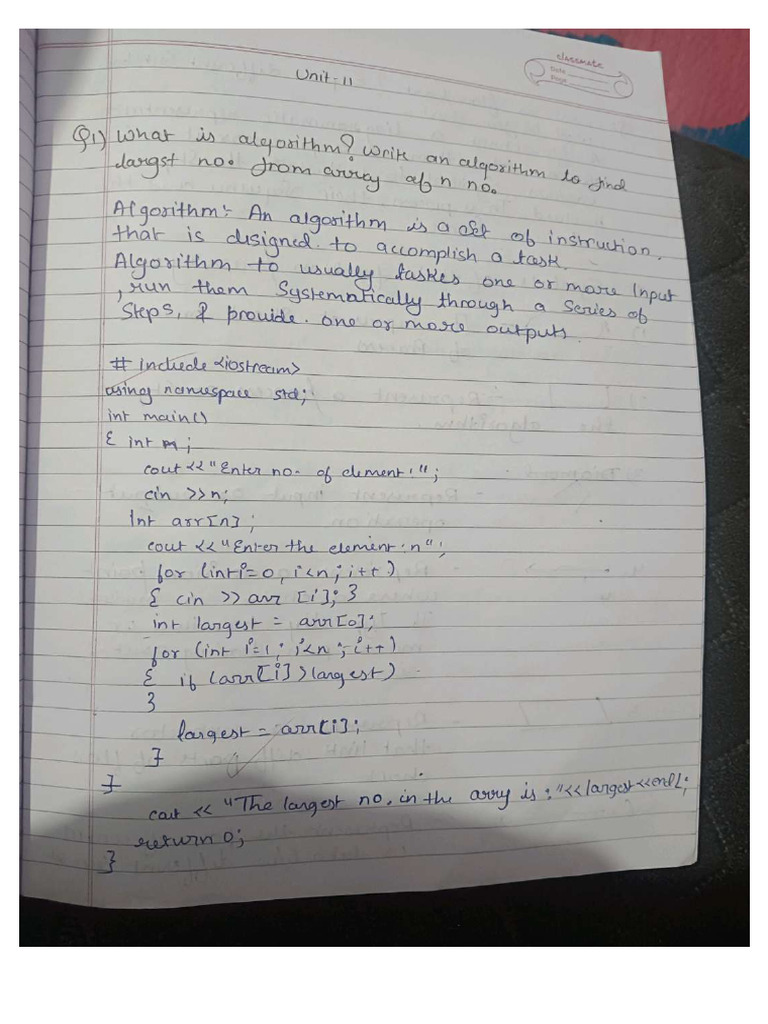 classmate
Date
Page
Unit - 11
Q1) What is algorithm? Write an algorithm to find
largst no. from array of n no.
Algorithm:- An algorithm is a set of instruction.
that is designed. to accomplish a task.
Algorithm to usually taskes one or more Input
, run them Systematically through a Series of
Steps, & provide. one or more outputs.
# include <iostream>
using namespace std;
int main()
{ int n;
cout << "Enter no. of element:";
cin >> n;
Int arr[n];
cout << "Enter the element: n";
for (int i=0, i<n; i++)
{ cin >> arr [i]; }
int largest = arr[0];
for (int i=1; i<n; i++)
{ if (arr[i] > largest)
}
largest = arr[i];
}
}
cout << "The largest no. in the arry is: "<<largest<<endl;
return 0;
}